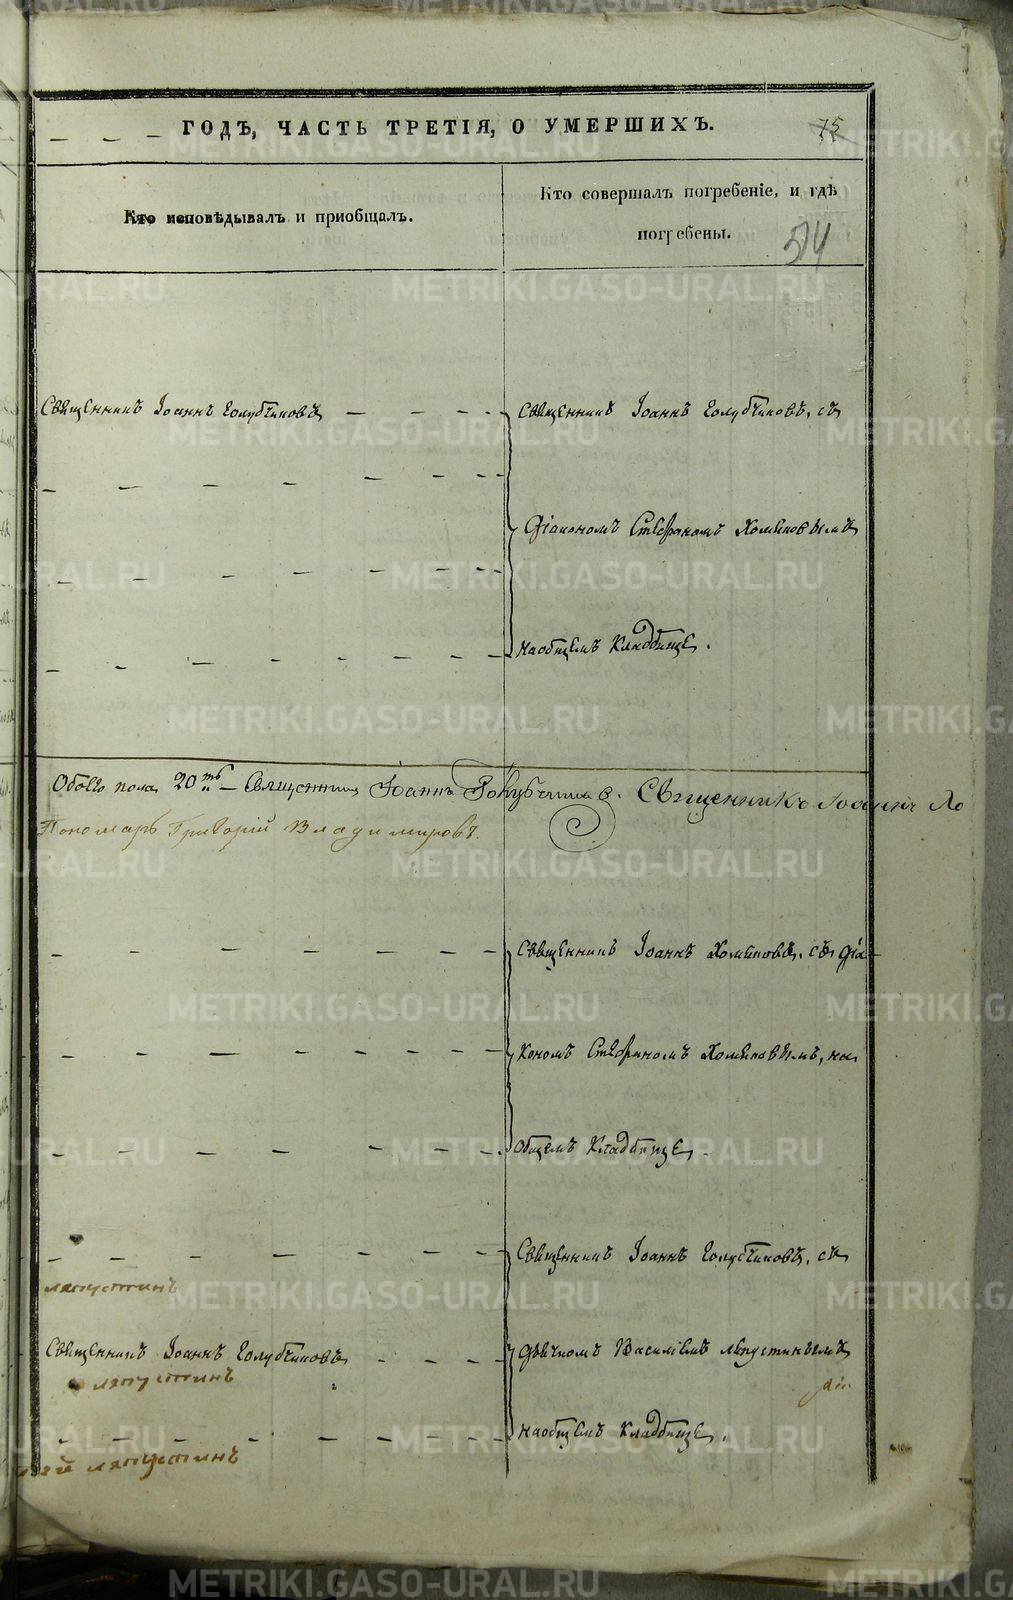 ГОДЪ, ЧАСТЬ ТРЕТІЯ, О УМЕРШИХЪ.
75
Кто исповѣдывалъ и приобщалъ.
Кто совершалъ погребеніе, и гдѣ
погребены.
514
Священникъ Іоаннъ Голубчиковъ
Священникъ Іоаннъ Голубчиковъ, съ
Діакономъ Стефаномъ Хомяковымъ
На общемъ Кладбище.
Обоего пола 20ть – Священникъ Іоаннъ Голубчиковъ. Священникъ Іоаннъ Хо
Пономарь Григорій Владимировъ.
Священникъ Іоаннъ Хомяковъ, съ Діа-
кономъ Стефаномъ Хомяковымъ, на
Общемъ Кладбище.
Священникъ Іоаннъ Голубчиковъ, съ
ляпустинъ
Священникъ Іоаннъ Голубчиковъ
Дьячкомъ Василіемъ Ляпустинымъ
ляпустинъ
На общемъ Кладбище.
ляпустинъ
METRIKI.GASO-URAL.RU